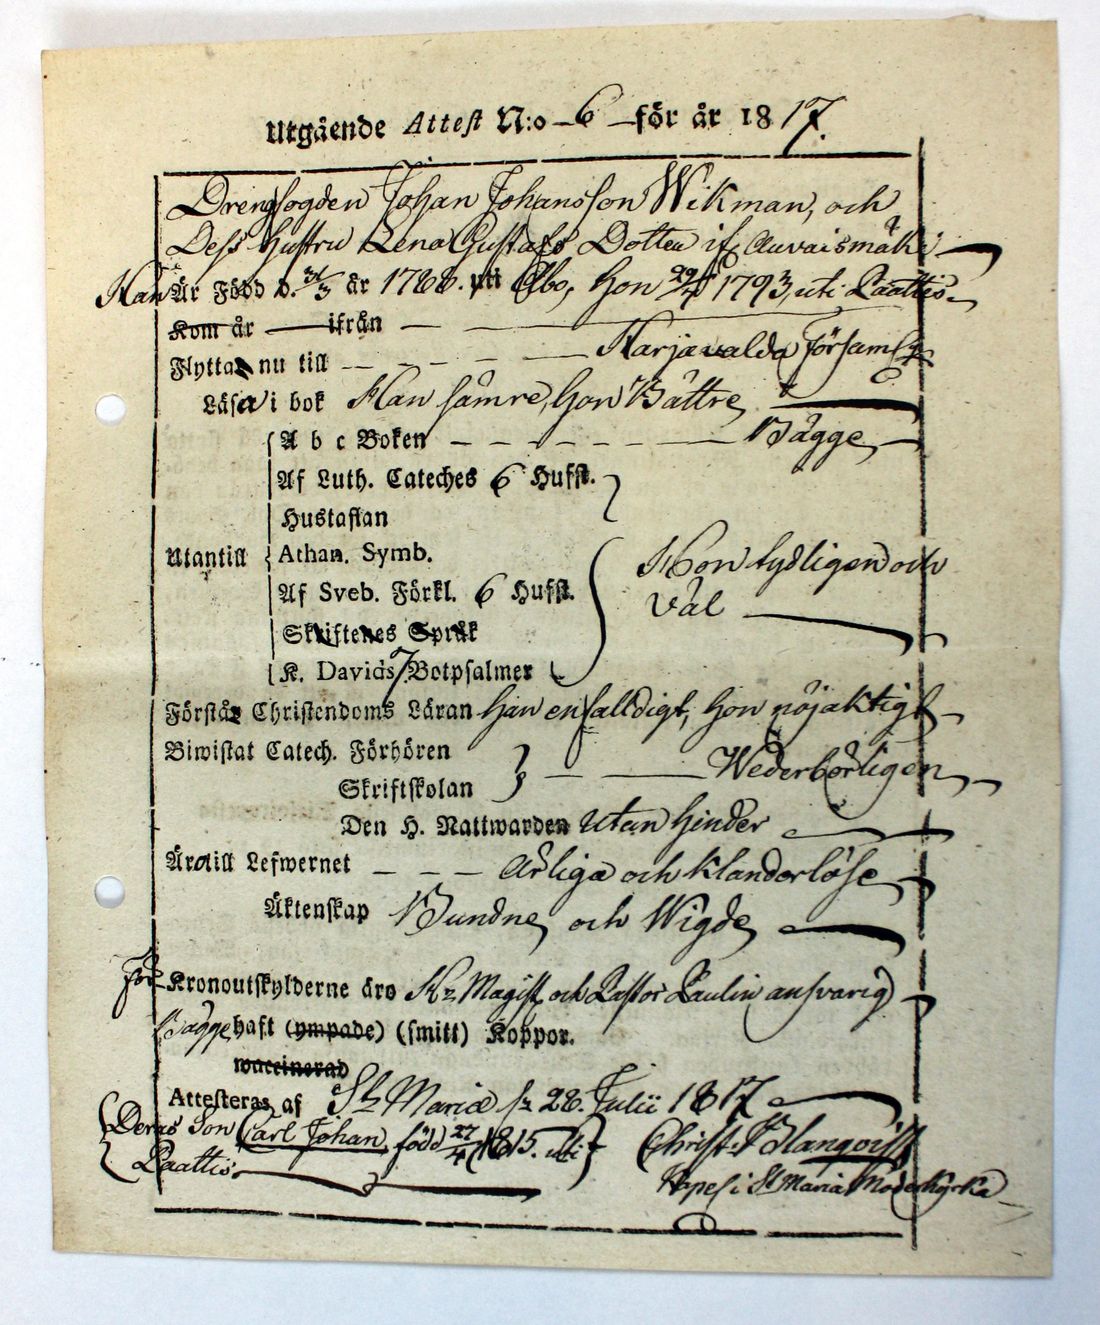 Utgående Attest N:o 6 för år 1817.
Drengfogden Johan Johansson Wikman, och
Dess hustru Lena Gustafs Dotter if. Auvaismäki
Han Är Född d. 31/3 år 1788. uti Åbo, hon 29/ 1793, uti Paattis
Kom år ifrån
Flytta nu till Harjavalda Församl
Läsa i bok Han sämre, hon Bättre
A b c Boken Bägge
Af Luth. Cateches 6 Hufst.
Hustaflan
Utantill Athan. Symb. Hon tydligen och
Af Sveb. Förkl. 6 Hufst. Väl
Skriftenes Språk
K. Davids 7 Botpsalmer
Förstår Christendoms Läran han enfalldigt, hon nöjaktigt
Biwistat Catech. Förhören
Skriftskolan Wederbörligen
Den H. Nattwarden utan hinder
Äro till Lefwernet ärliga och klanderlöse
Äktenskap Bundne och Wigde
För Kronoutskylderne äro Hr Magist. och Pastor Paulin answarig
Bägge haft (ympade) (smitt) Koppor.
waccinerad
Attesteras af St Mariæ d. 28. Julii 1817
Deras Son Carl Johan född 27/4 1815. uti Christ. Blanqvist
Paattis Kapel. i St Mariæ Moderkyrka